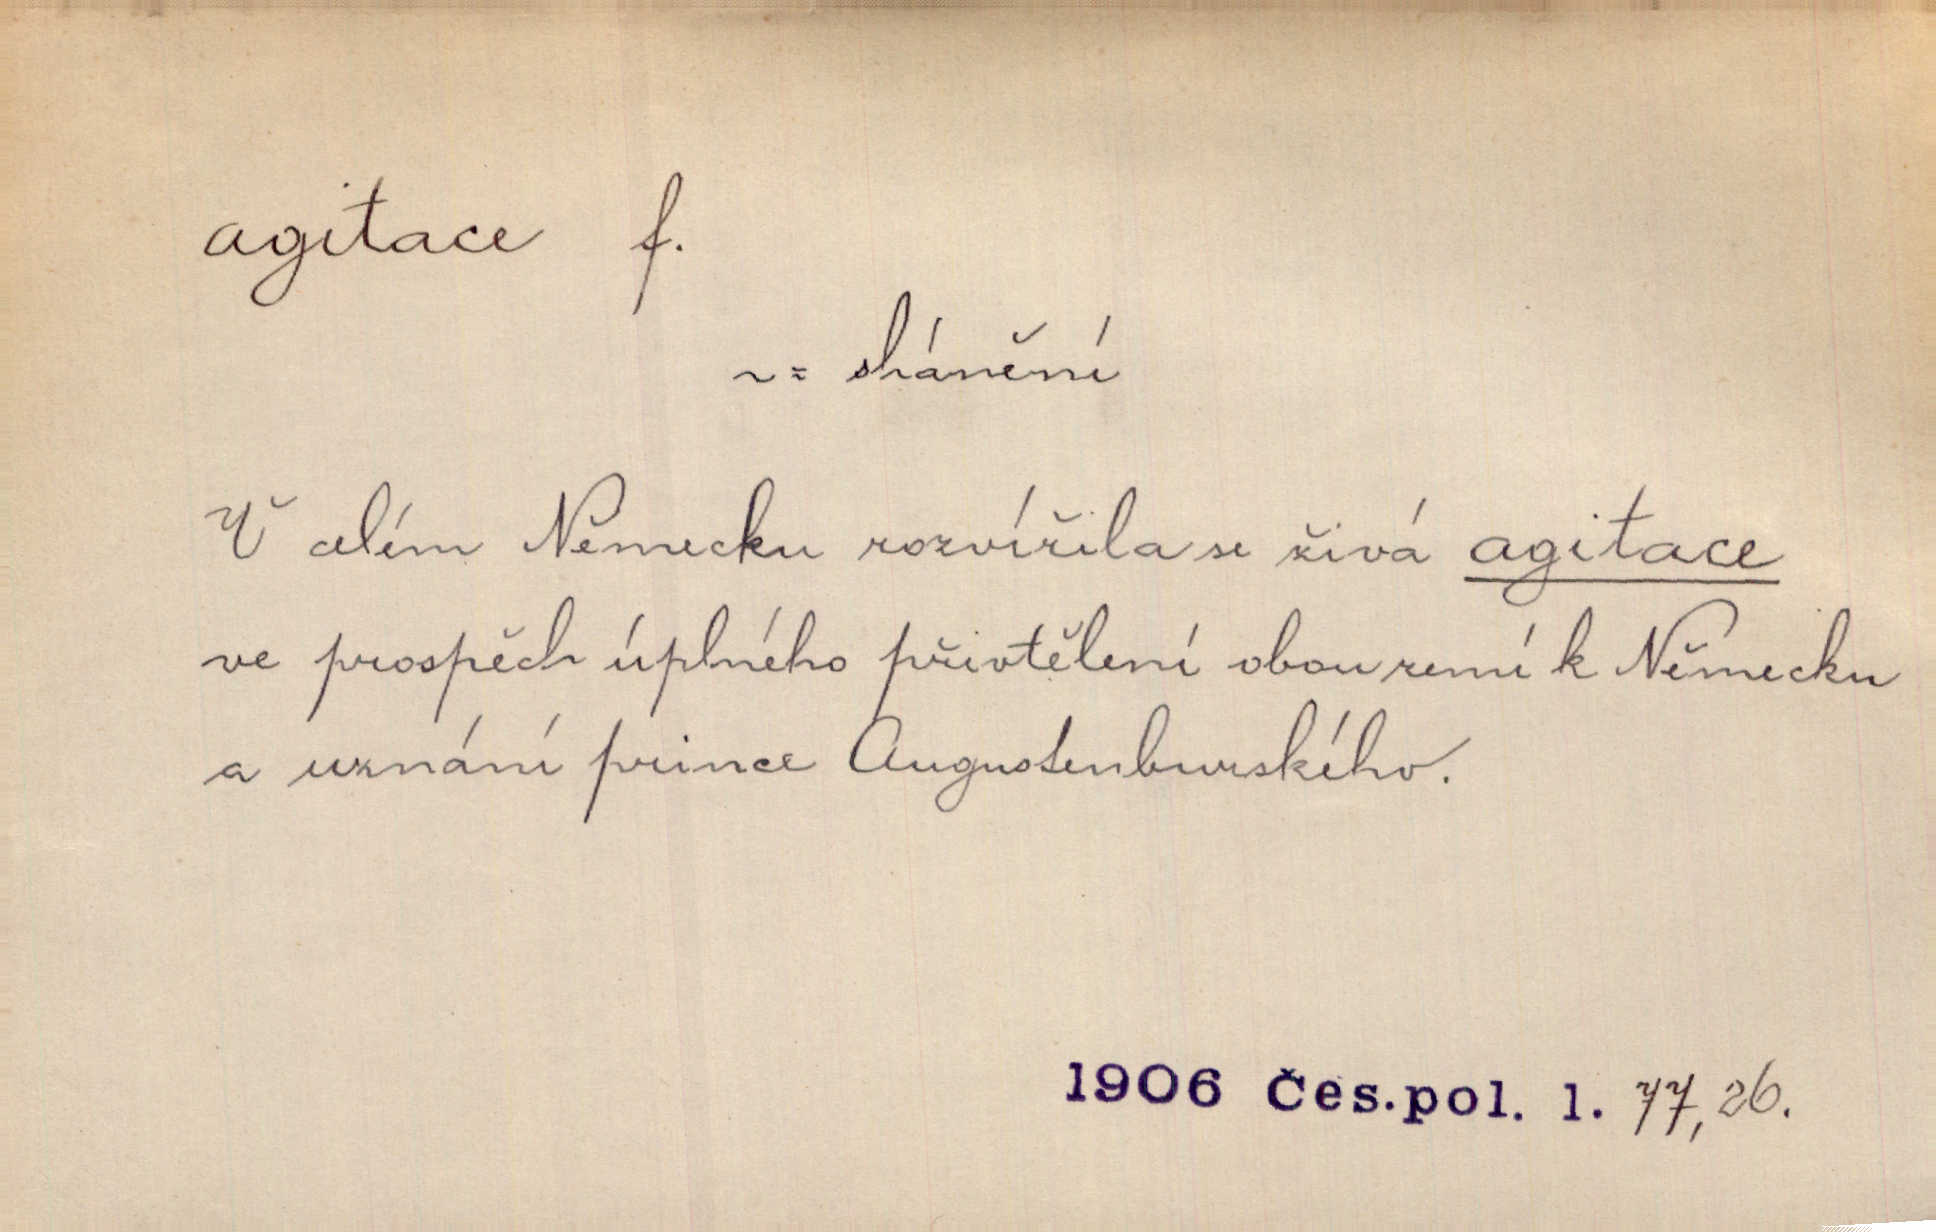 agitace f.
~ = shánění
V celém Německu rozvířila se živá agitace
ve prospěch úplného přivtělení obou zemí k Německu
a uznání prince Augustenburského.
1906 Čes.pol. 1. 77,26.